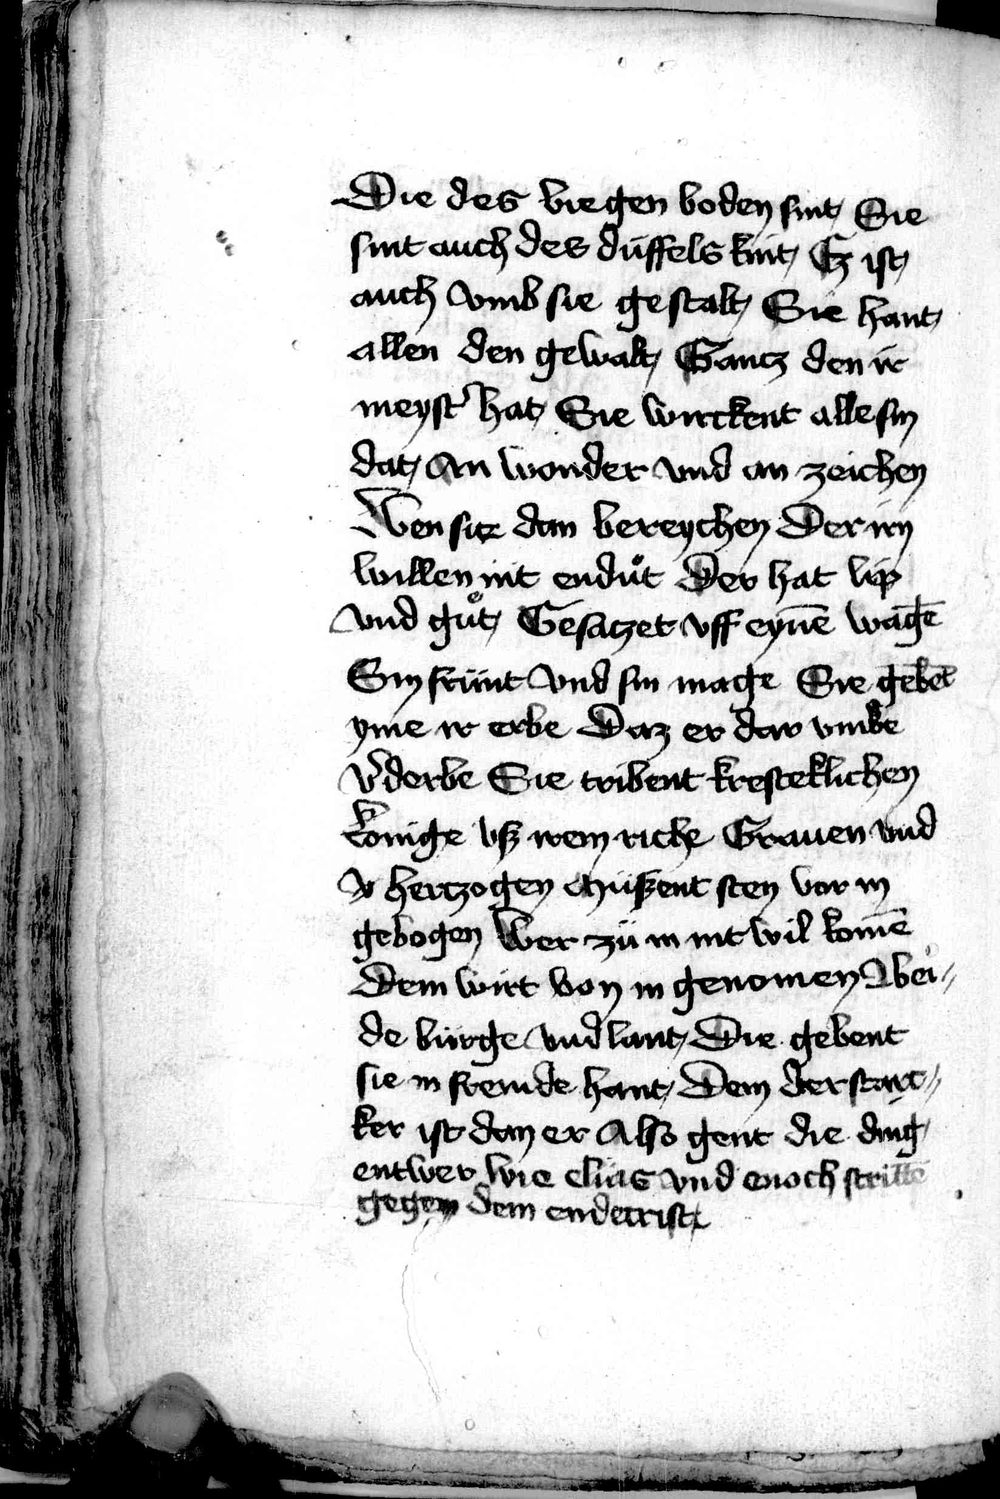 Die des biegen boden sint, Sie
sint auch des düffels kint, Ez ist,
auch vmb sie gestalt, Sie hant,
allen den gewalt, Gantz den ir
meyst' hat, Sie wirckent alle sin
dat, An wonder vnd an zeichen
Wen sie dan bereychen Der irn
willen nit enduͦt Der hat lip
vnd guͦt, Gesatzet vff eynē wagē
Sin frünt vnd sin mage Sie gebēt
yme ir erbe Daz er dar vmbe
v'derbe Sie tribent krefteklichen
konige vß irem riche Grauen vnd
hertzogen Müßent sten vor in
gebogen Wer zü in nit wil komē
Dem wirt von in genomen Bei-
de bürge vnd lant, Die gebent
sie in fremde hant, Dem der starc-
ker ist dan er Also gent die ding
entwer wie elias vnd enoch strittē
gegen dem endecrist